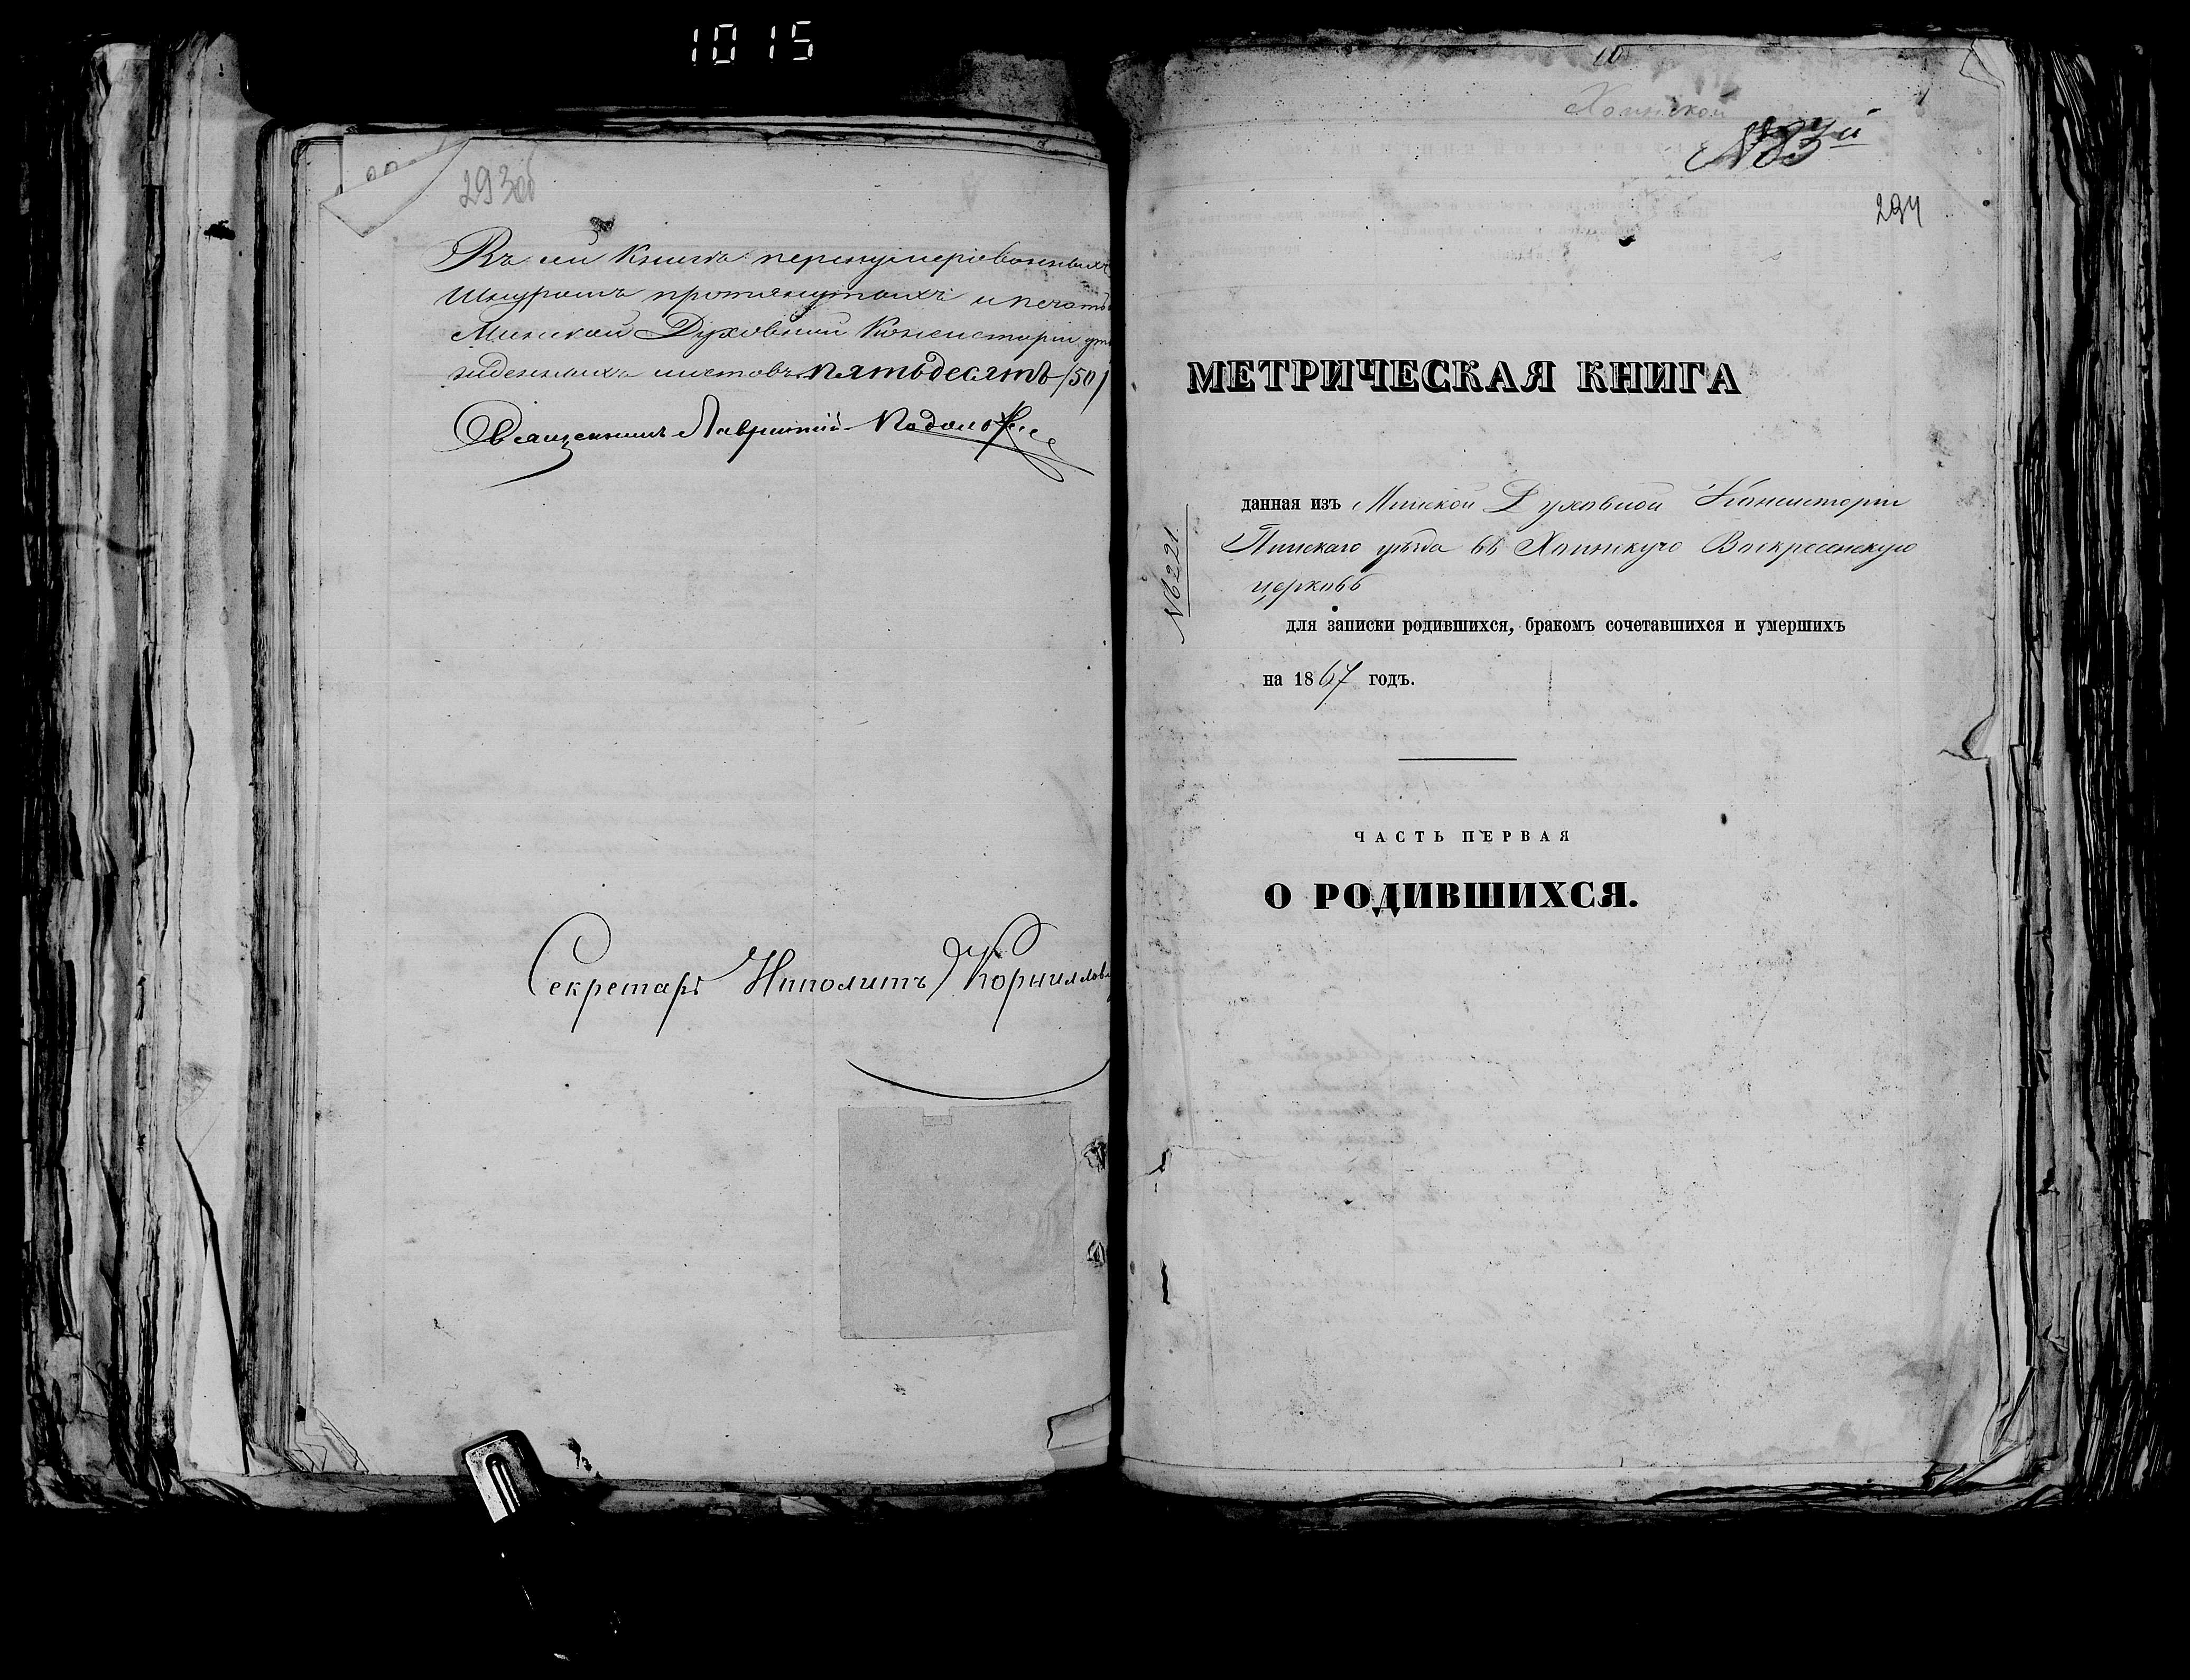 1015
293об
Въ сей книгѣ перенумерованныхъ
шнуромъ протянутыхъ и печатью
Минской Духовной Консисторіи
листовъ пятьдесятъ /50/
Священникъ Лаврентій
Секретарь Ипполитъ Корнилловъ
10
Хоинской
№83й
294
МЕТРИЧЕСКАЯ КНИГА
данная изъ Минской Духовной Консисторіи
Пинскаго уѣзда въ Хоинскую Воскресенскую
церковь
№6221
для записки родившихся, бракомъ сочетавшихся и умершихъ
на 1867 годъ.
ЧАСТЬ ПЕРВАЯ
О РОДИВШИХСЯ.